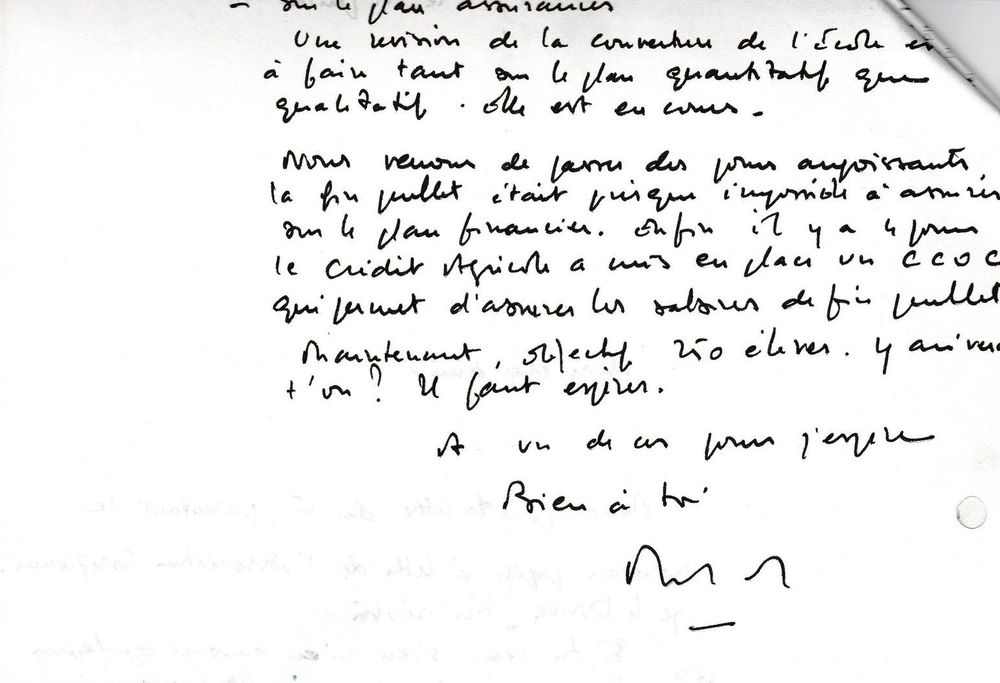 - sur le plan assurances
Une revision de la couverture de l'École est
à faire tant sur le plan quantitatif que
qualitatif. Elle est en cours.
Nous venons de passer des jours angoissants,
la fin juillet était presque impossible à assurer
sur le plan financier. Enfin il y a 4 jours
le Crédit Agricole a mis en place un CCOC
qui permet d'assurer les salaires de fin juillet
Maintenant, objectif 250 élèves. Y arrivera
t'on? Il faut espérer.
A un de ces jours j'espère
Bien à toi